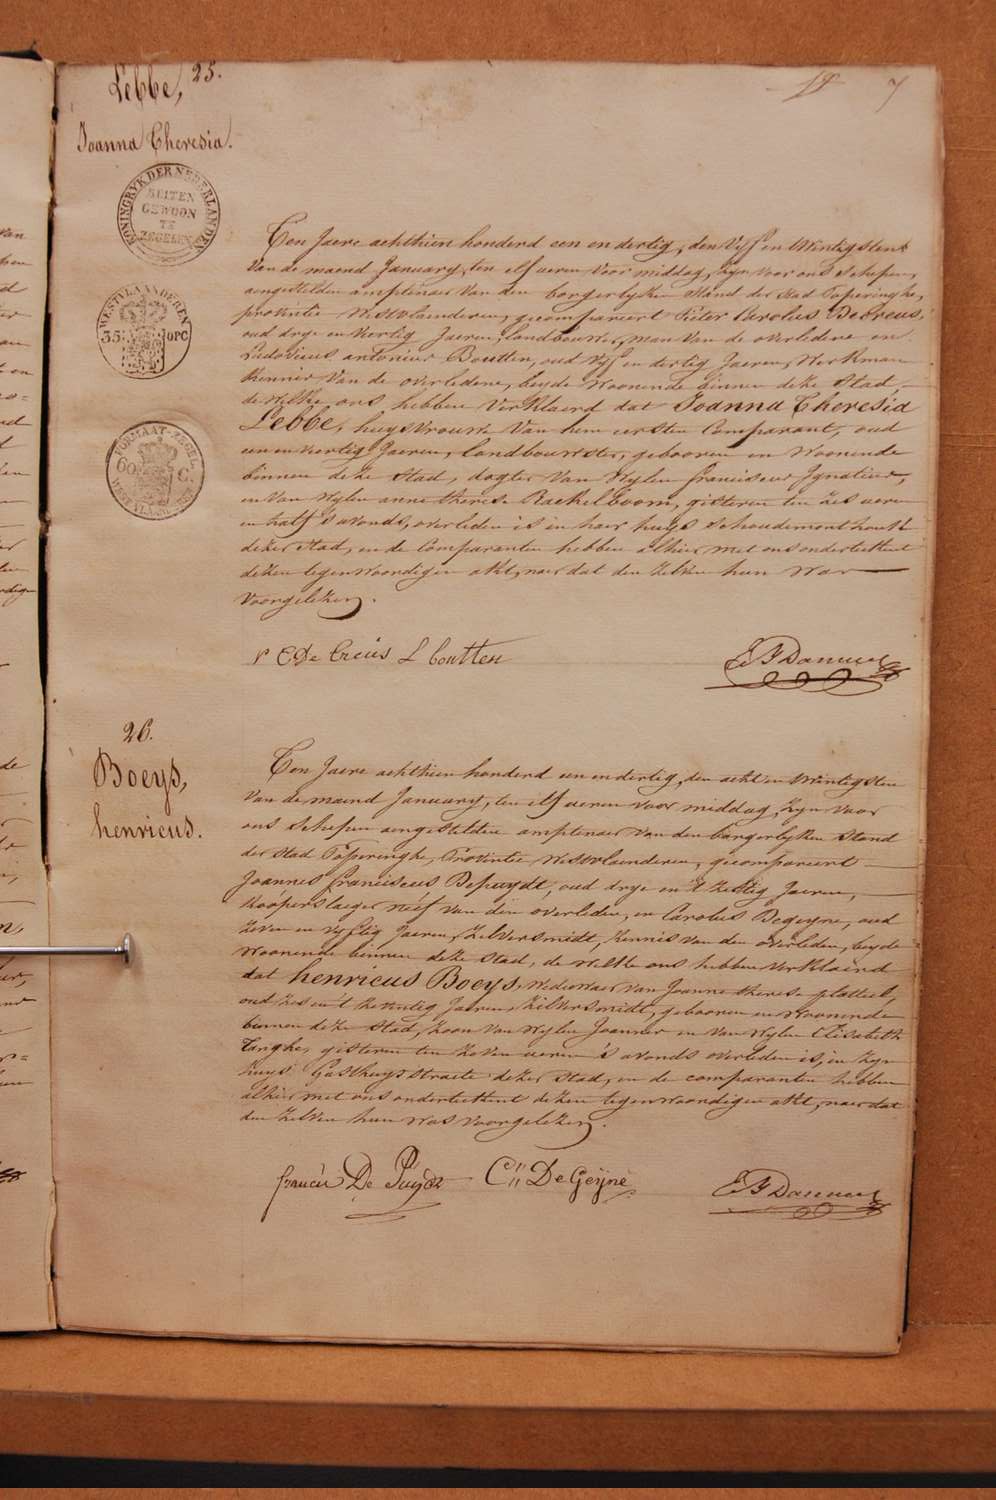 Lebbe, 25.
Joanna Theresia.
7
KONINGRYK DER NEDERLANDEN
BUITEN
GEWOON
TE
ZEGELEN
WESTVLAANDEREN
35 OPC
FORMAAT-ZEGEL
60 C.
WESTVLAANDEREN
Ten Jaere achthien honderd een en dertig, den Vyf en twintigsten
van de maend January, ten elf ueren voor middag, zyn voor ons Schepen,
aengestelden amptenaer van den borgerlyken Stand der Stad Poperinghe,
provintie Westvlaenderen, gecompareert Pieter Carolus Decreus,
oud drye en veertig Jaeren, landbouwer, man van de overledene en
Ludovicus antonius Boutten, oud vyf en dertig Jaeren, Werkman
kennis van de overledene, beyde Woonende binnen deze Stad,
dewelke ons hebben Verklaerd dat Joanna Theresia
Lebbe, huysvrouwe van hem eersten Comparant, oud
een en veertig Jaeren, Landbouwster, gebooren en Woonende
binnen deze Stad, dogter van Wylen franciscus Ignatius,
en van Wylen anne therese Raekelboom, gisteren ten zes ueren
en half s'avonds, overleden is in haer huys Schoudemonthoutk
dezer Stad, en de Comparanten hebben alhier met ons onderteekent
dezen tegenwoordigen akt, naer dat den zelven hun War
Voorgelezen.
P C De Creus L boutten
26.
Boeys,
henricus.
Ten Jaere achthien honderd een en dertig, den acht en twintigsten
van de maend January, ten elf ueren voor middag, zyn voor
ons Schepen aengestelden amptenaer van den borgerlyken Stand
der Stad Poperinghe, Provintie Westvlaenderen, gecompareert
Joannes franciscus Depuydt, oud drye en 't zestig Jaeren,
Koóperslaeger neef van den overleden, en Carolus Degeyne, oud
zeven en vyftig Jaeren, Zilversmidt, kennis van den overleden, beyde
Woonende binnen deze Stad, de welke ons hebben verklaerd
dat henricus Boeys, Weduwaer van Joanne therese
oud zes en 't zeventig Jaeren, Zilversmidt, gebooren en Woonende
binnen deze Stad, zoon van Wylen Joannes en van Wylen Elisabeth
Tanghe, gisteren ten zeven ueren 's avonds overleden is, in zyn
huys Gasthuysstraete dezer Stad, en de comparanten hebben
alhier met ons onderteekent dezen tegenwoordigen akt, naer dat
den zelven hun Was voorgelezen.
francis De Puydt C:" De Geijne